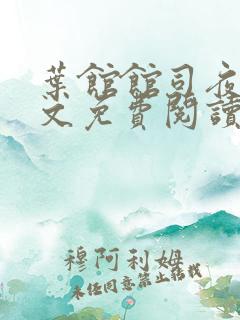 葉館館司夜
文免費閱讀
穆阿利姆
未經同意禁止轉載